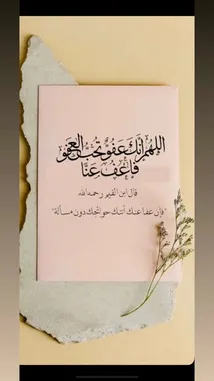 اللهم إنك عفو تحب العفو
فاعف عنا
قال ابن القيم رحمه الله
"فإن عفا عنك أتتك حوائجك دون مسألة"